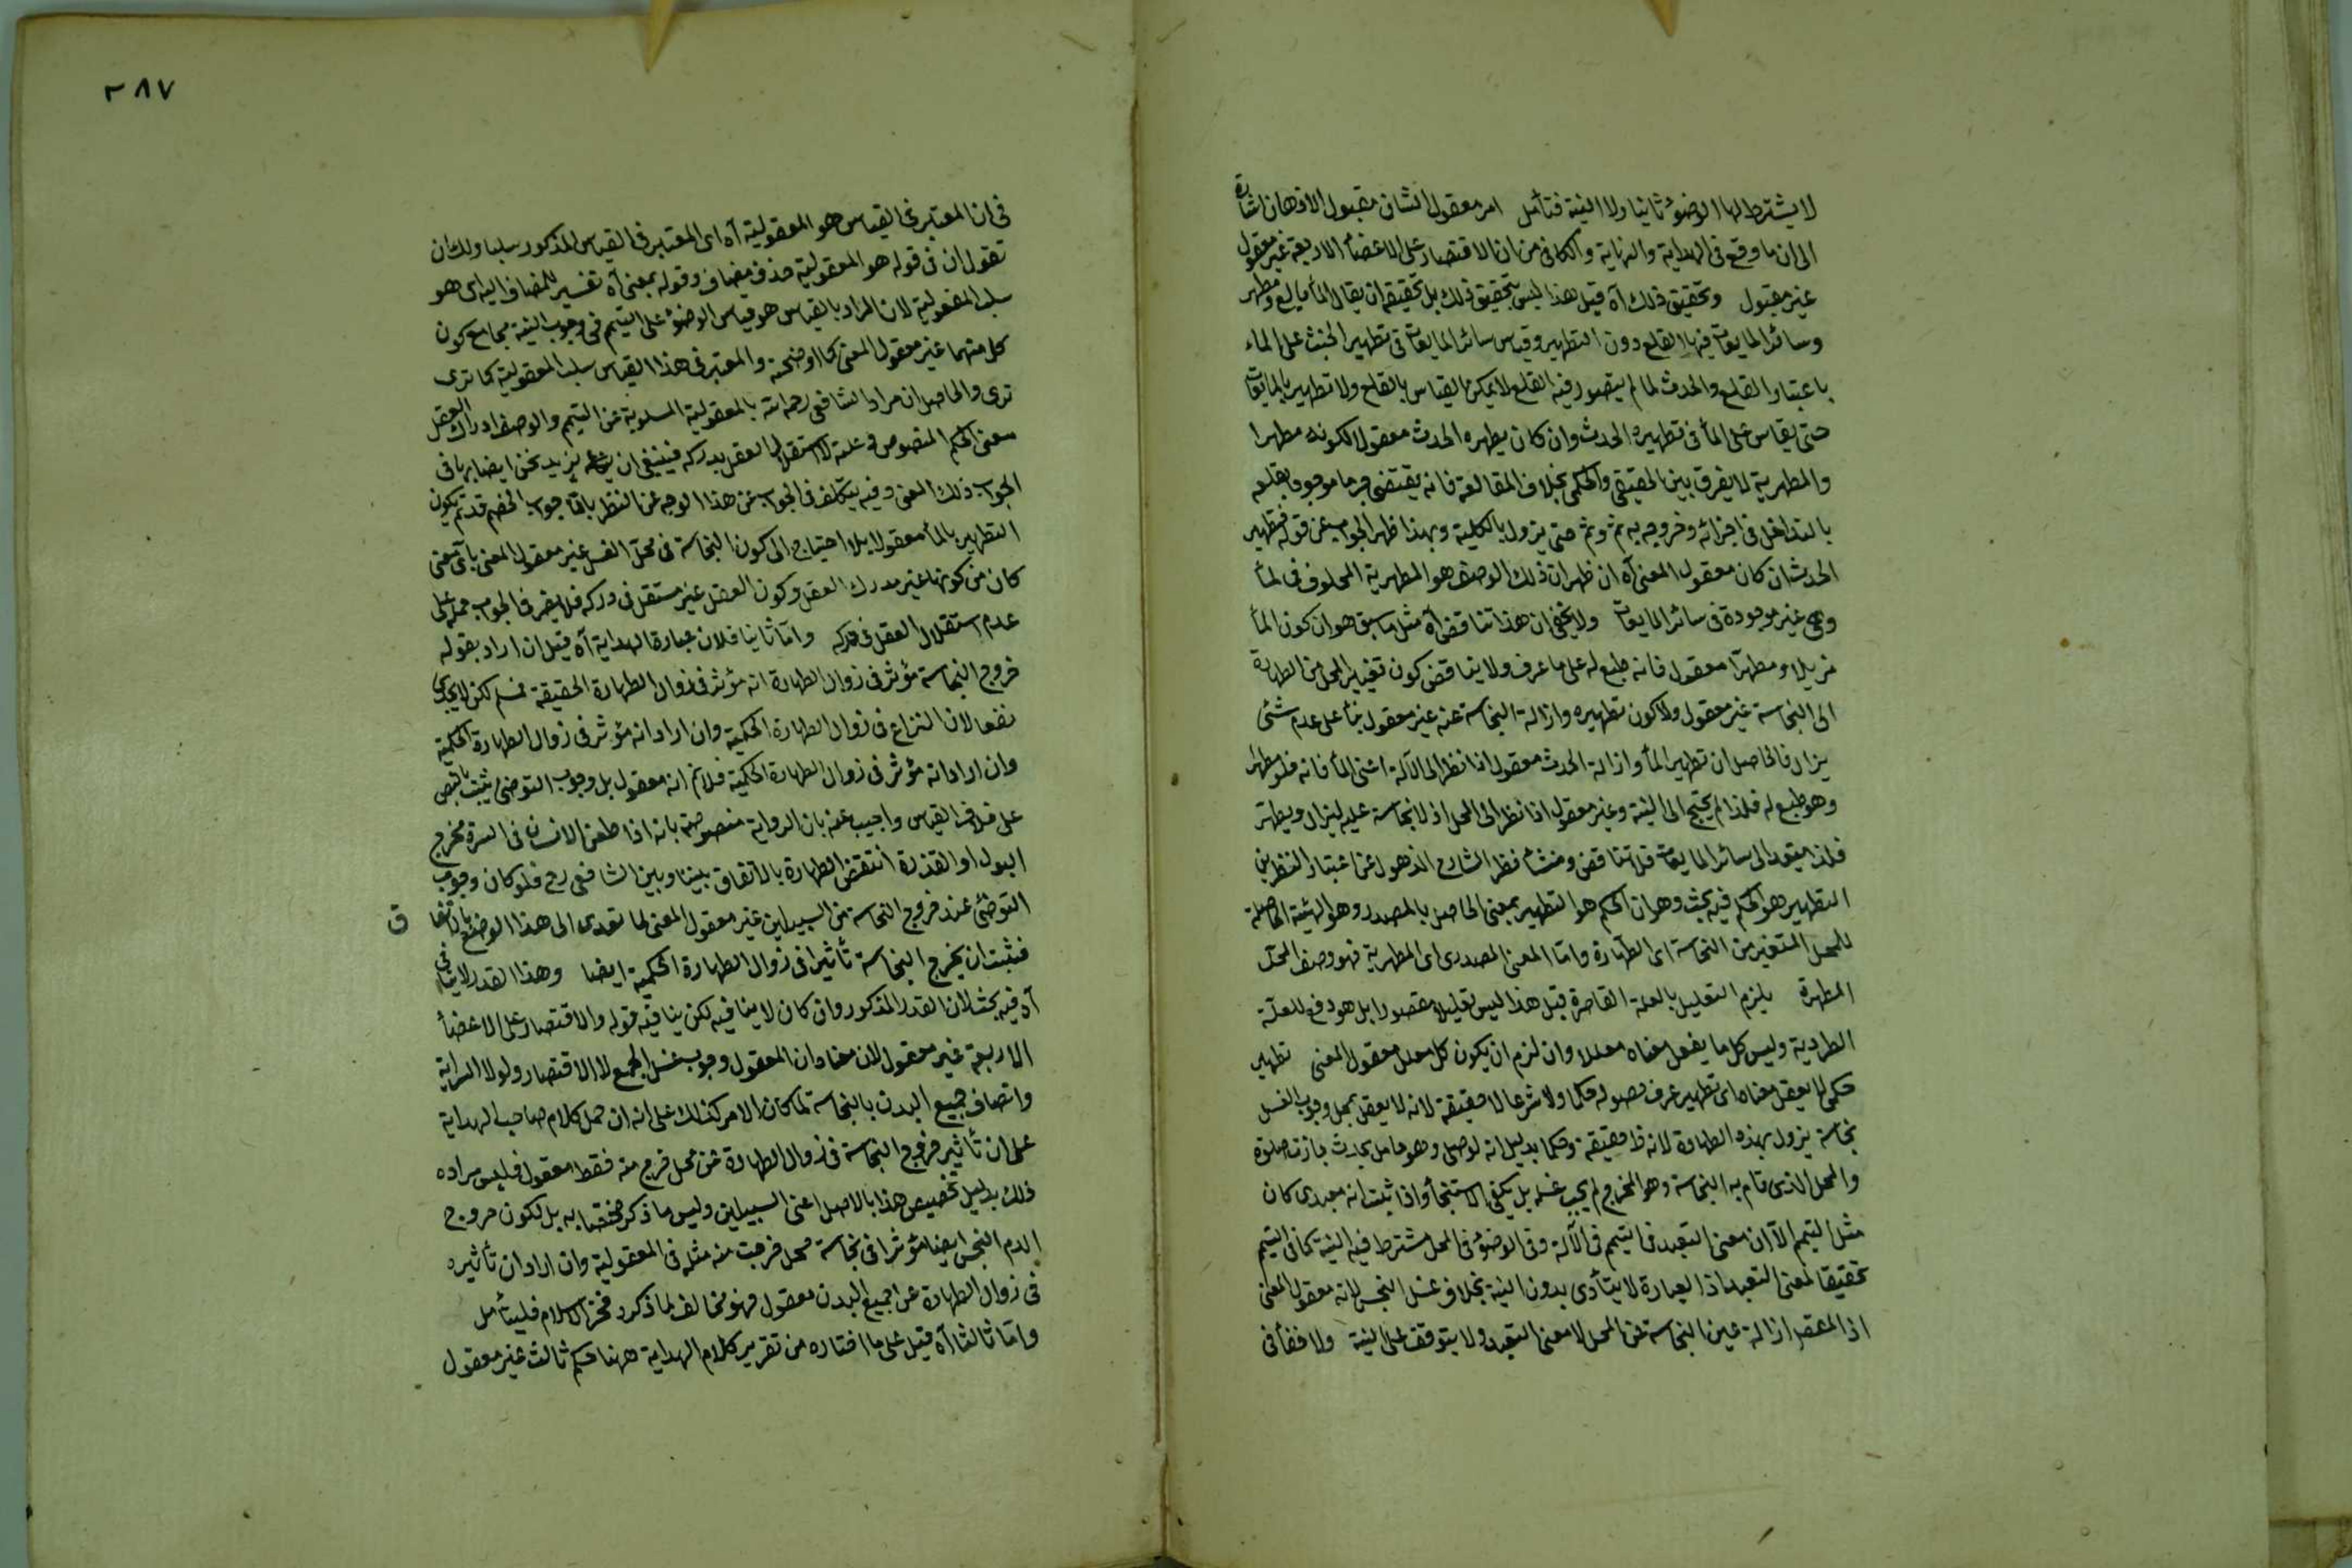 لا يشترط لها الوضوء ثانيا ولا النية فتأمل امر معقول الشان مقبول الاذهان اشارة
الى ان ما وقع فى الهداية والنهاية والكافى من ان الاقتصار على الاعضاء الاربعة غير معقول
غير مقبول وتحقيق ذلك آه قيل هذا ليس تحقيق ذلك بل تحقيقه ان يقال الماء مايع ومطهر
وسائر المايعات فيها القلع دون التطهير وقياس سائر المايعات فى تطهير الخبث على الماء
باعتبار القلع والحدث لما لم يتصور فيه القلع لا يمكن القياس بالقلع ولا تطهير بالمايعات
حتى يقاس على الماء فى تطهيره الحدث وان كان يطهره الحدث معقولا لكونه مطهرا
والمطهرية لا يفرق بين الحقيقى والحكمى بخلاف القالعة فانه يقتضى جرما موجودا يقلعه
بالتداخل فى اجزائه وخروجه به ثم وثم حتى يزول بالكلية وبهذا ظهر الجواب عن قوله فتطهير
الحدث ان كان معقول المعنى آه ان ظهر ان ذلك الوصف هو المطهرية المخلوق فى الماء
وهى غير موجودة فى سائر المايعات ولا يخفى ان هذا تناقض آه مثل ما سبق هو ان كون الماء
مزيلا ومطهرا معقول فانه طبع له على ما عرف ولا يناقض كون تغيير المحل من الطهارة
الى النجاسة غير معقول ولا كون تطهيره وازالة النجاسة عنه غير معقول بناء على عدم شئ
يزال فالحاصل ان تطهير الماء وازالة الحدث معقول اذا نظر الى الآلة اعنى الماء فانه خلق مطهرا
وهو طبع له فلذا لم يحتج الى النية وغير معقول اذا نظر الى المحل اذ لا نجاسة عليه ليزال ويطهر
فلذا يتعد الى سائر المايعات فلا تناقض ومنشاء نظر الشارح الذهول عن اعتبار النظرين
التطهير هو الحكم فيه بحث وهو ان الحكم هو التطهير بمعنى الحاصل بالمصدر وهو الهيئة الحاصلة
للمحل المتغير من النجاسة اى الطهارة واما المعنى المصدرى اى المطهرية فهو وصف المحل
المطهرة يلزم التعليل بالعلة القاصرة قيل هذا ليس تعليلا مقصورا بل هو دفع للعلة
الطردية وليس كل ما يفعل معناه معللا وان لزم ان يكون كل معلل معقول المعنى تطهير
حكمى لا يعقل معناه اى تطهير عرف حصوله حكما ولا شرعا لا حقيقة لانه لا يعقل بمحل وجوب الغسل
نجاسة يزول بهذه الطهارة لانه طاهر حقيقة وحكما بدليل انه لو صلى وهو حامل محدث جازت صلوة
والمحل الذى قام به النجاسة وهو المخرج لم يجب غسله بل يكفى الاستنجاء واذا ثبت انه تعبدى كان
مثل التيمم الا ان معنى التعبد فى التيمم فى الآلة وفى الوضوء فى المحل مشترط فيه النية كما فى التيمم
تحقيقا لمعنى التعبد اذ العبادة لا يتأدى بدون النية بخلاف غسل النجس لانه معقول المعنى
اذ المعقول ازالة عين النجاسة عن المحل لا معنى التعبد ولا يتوقف على النية ولا خفاء فى
٢٨٧
فى ان المعتبر فى القياس هو المعقولية آه اى المعتبر فى القياس المذكور سلبا ولك ان
تقول ان فى قوله هو المعقولية حذف مضاف وقوله بمعنى آه تفسير للمضاف اليه اى هو
سلب المعقولية لان المراد بالقياس هو قياس الوضوء على التيمم فى وجوب النية بجامع كون
كل منهما غير معقول المعنى كما اوضحته والمعتبر فى هذا القياس سلب المعقولية كما ترى
ترى والحاصل ان مراد الشافعى رحمه الله بالمعقولية المسلوبة عن التيمم والوصف ادراك العقل
معنى الحكم المنصوص فى علته لا استقلال العقل بدركه فينبغى ان نريد نحن ايضا بها فى
الجواب ذلك المعنى وفيه تكلف فى الجواب عن هذا الوجه من النظر بالقاء جواب الخصم قد تم بكون
التطهير بالماء معقولا بلا احتياج الى كون النجاسة فى محل الغسل غير معقول المعنى باى معنى
كان من كونها غير مدرك العقل وكون العقل غير مستقل فى دركه فلا يضر فى الجواب حمله على
عدم استقلال العقل فى دركه واما ثانيا فلان عبارة الهداية آه قيل ان اراد بقوله
خروج النجاسة مؤثر فى زوال الطهارة انه مؤثر فى زوال الطهارة الحقيقة فمسلم لكن لا يجدى
نفعا لان النزاع فى زوال الطهارة الحكمية وان اراد انه مؤثر فى زوال الطهارة الحكمية
وان اراد انه مؤثر فى زوال الطهارة الحكمية فلانم انه معقول بل وجوب التوضى يثبت بالنص
على خلاف القياس واجيب عنه بان الرواية منصوصة بانه اذا طعن الانسان فى السرة فخرج
البول او القذرة انتقض الطهارة بالاتفاق بيننا وبين الشافعى رح فلو كان وجوب
التوضئ عند خروج النجاسة من السبيلين غير معقول المعنى لما تعدى الى هذا الوضع بالاتفا ق
فثبت ان بخروج النجاسة تأثيرا فى زوال الطهارة الحكمية ايضا وهذا القدر لا ينافى
آه فيه بحث لان القدر المذكور وان كان لا ينافيه لكن ينافيه قوله والاقتصار على الاعضاء
الاربعة غير معقول لان مفاده ان المعقول وجوب غسل الجميع لا الاقتصار ولولا السراية
واتصاف جميع البدن بالنجاسة لما كان الامر كذلك على انه ان حمل كلام صاحب الهداية
على ان تأثير خروج النجاسة فى زوال الطهارة عن محل خرج منه فقط معقول فليس مراده
ذلك بدليل تخصيص هذا بالاصل اعنى السبيلين وليس ما ذكر مختصا به بل لكون خروج
الدم النجس ايضا مؤثرا فى نجاسة محل خرجت منه مثله فى المعقولية وان اراد ان تأثيره
فى زوال الطهارة عن جميع البدن معقول فهو مخالف لما ذكره فخر الاسلام فليتأمل
واما ثالثا آه قيل على ما اختاره من تقرير كلام الهداية ههنا حكم ثالث غير معقول